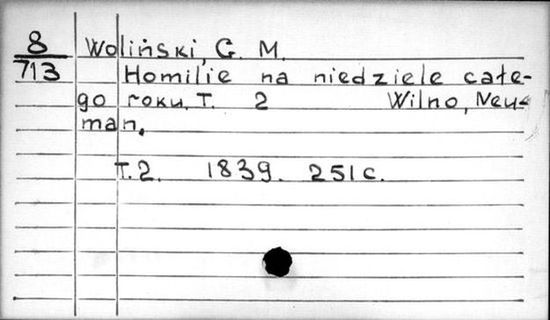 8 Woliński, G. M.
713 Homilie na niedziele całe-
go roku. T. 2 Wilno, Neu-
man.
T. 2. 1839. 251 c.